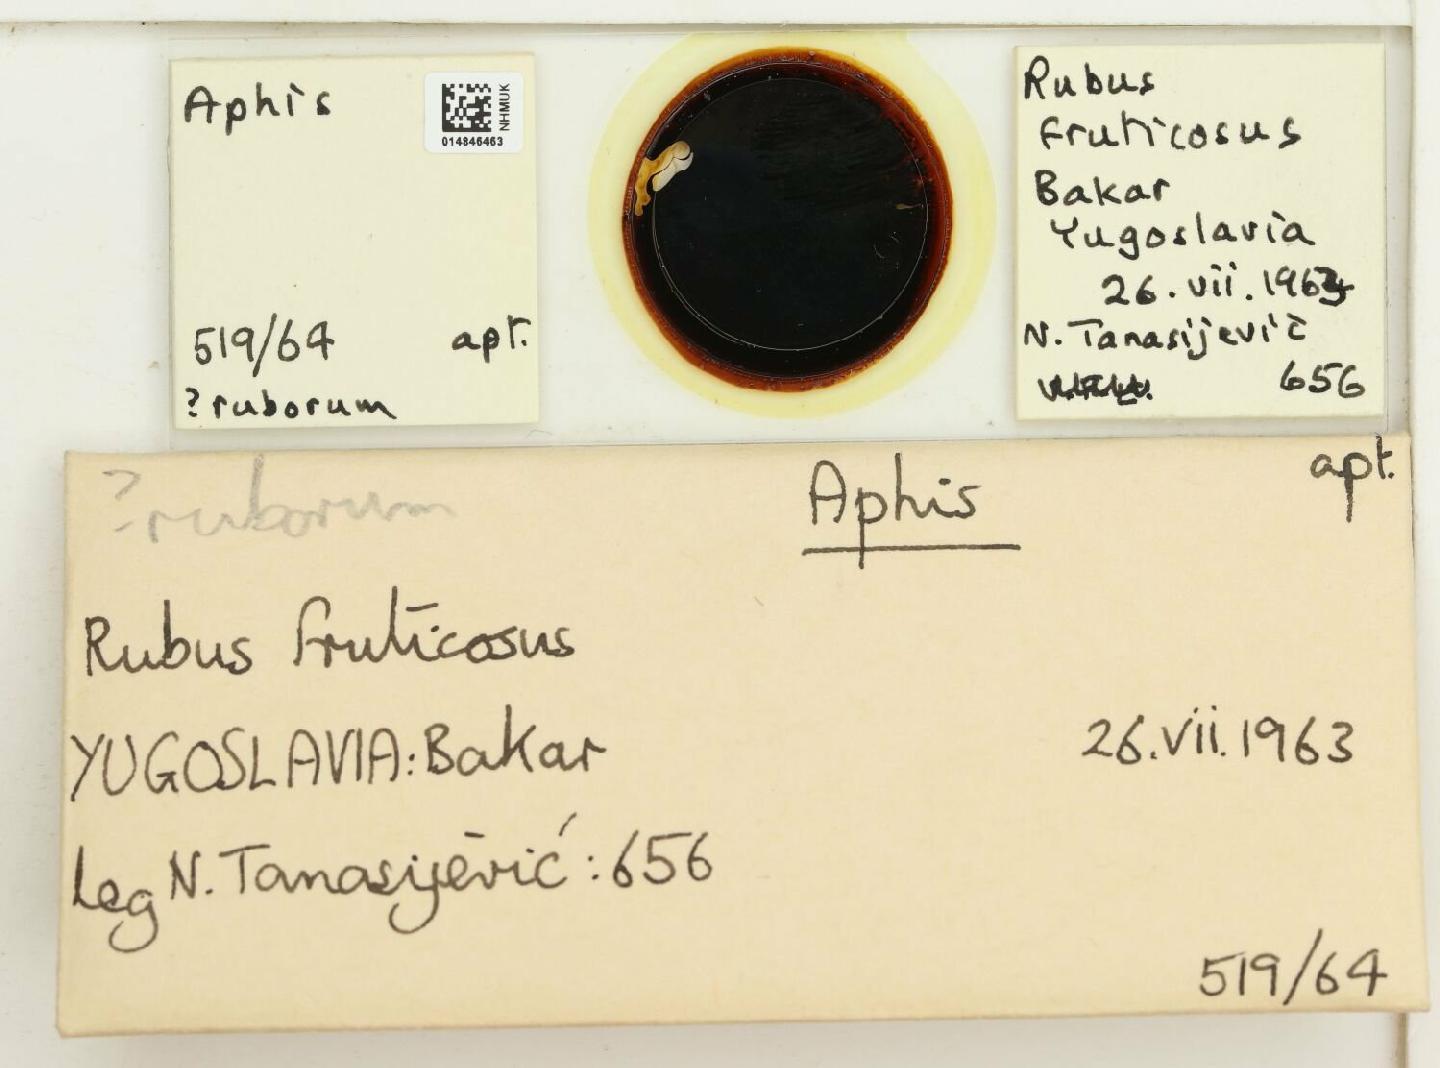 Aphis
NHMUK
014846463
519/64 apt.
?ruborum
Rubus
fruticosus
Bakar
Yugoslavia
26.vii.1963
N. Tanasijevič
656
?ruborum
Aphis
apt.
Rubus fruticosus
YUGOSLAVIA: Bakar 26.vii.1963
Leg N. Tanasijēvić: 656
519/64